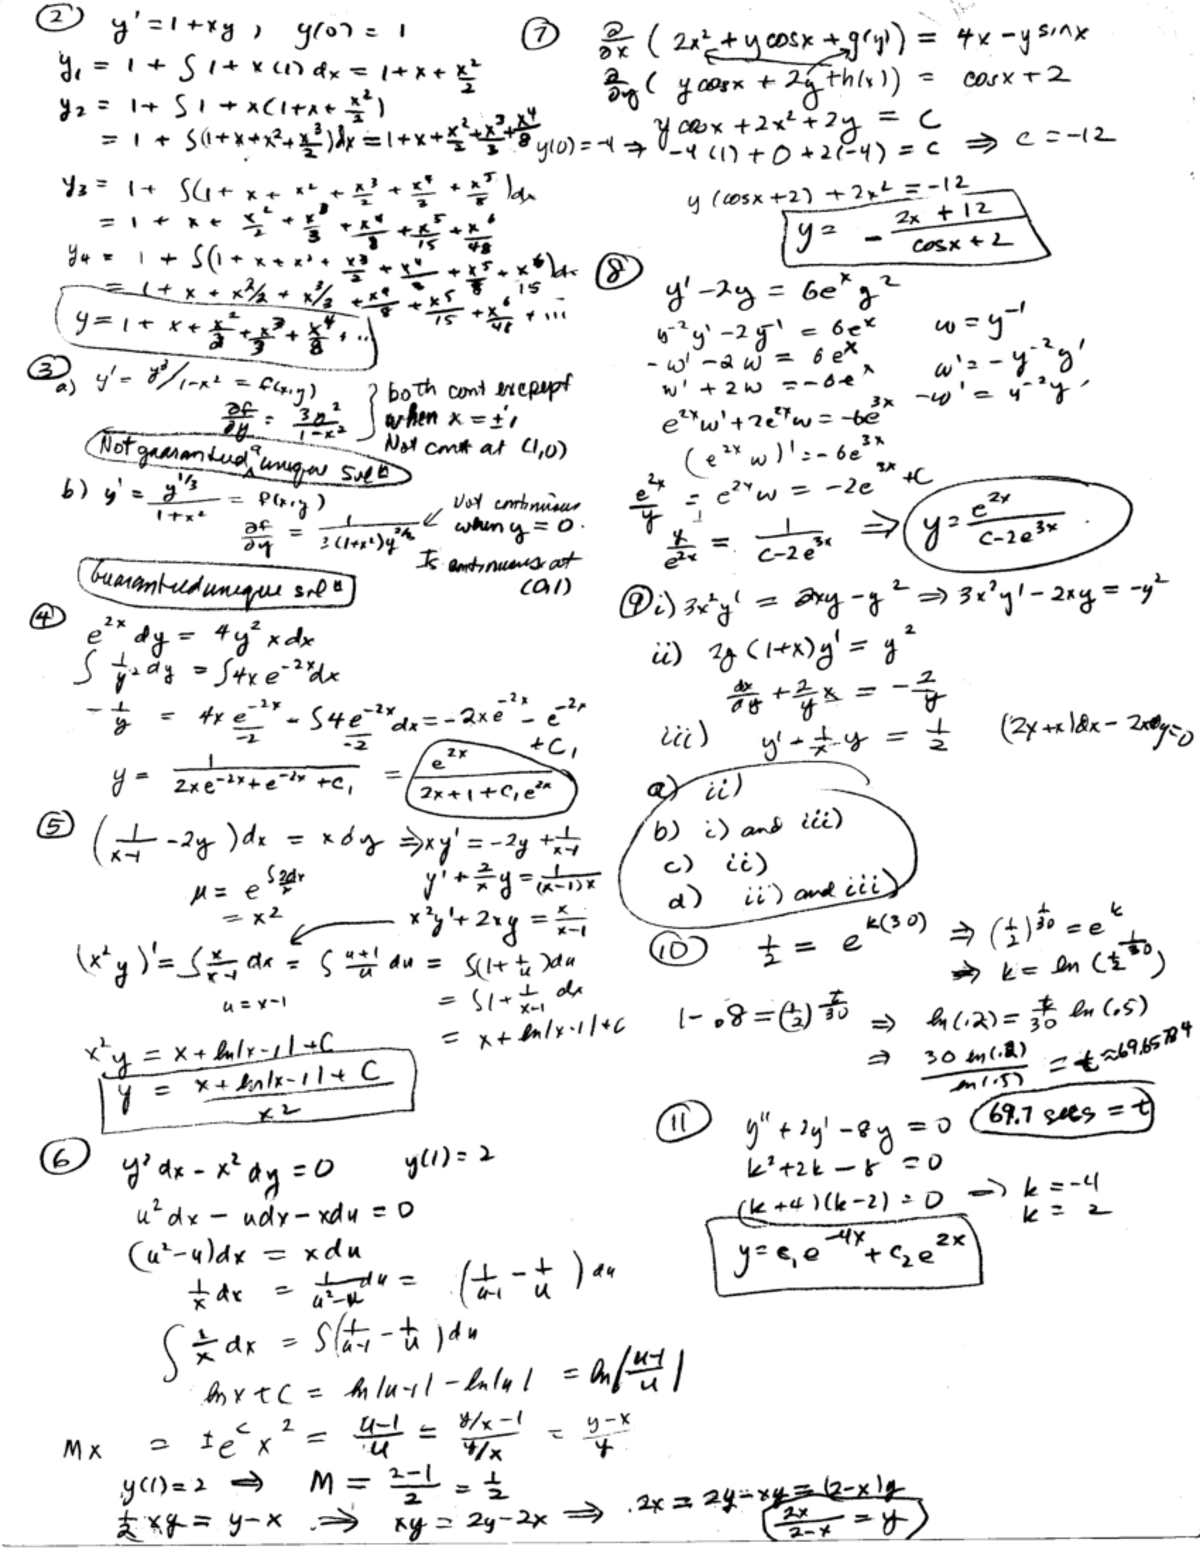 ② y' = 1 + xy , y(0) = 1
y₁ = 1 + ∫ 1 + x(1) dx = 1 + x + x²/2
y₂ = 1 + ∫ 1 + x(1 + x + x²/2)
= 1 + ∫(1 + x + x² + x³/2)dx = 1 + x + x²/2 + x³/3 + x⁴/8
y₃ = 1 + ∫(1 + x + x² + x³/2 + x⁴/3 + x⁵/8)dx
= 1 + x + x²/2 + x³/3 + x⁴/8 + x⁵/15 + x⁶/48
y₄ = 1 + ∫(1 + x + x² + x³/2 + x⁴/ + x⁵/8 + x⁶/15)dx
= 1 + x + x²/2 + x³/3 + x⁴/8 + x⁵/15 + x⁶/48 + ...
y = 1 + x + x²/2 + x³/3 + x⁴/8 + ...
③ a) y' = y³/1-x² = f(x,y)
∂f/∂y = 3y²/1-x²
both cont except
when x = ±1
Not cont at (1,0)
Not guaranteed a unique soln
b) y' = y^(1/3)/1+x² = f(x,y)
∂f/∂y = 1/3(1+x²)y^(2/3)
Not continuous
when y = 0.
Is continuous at
(0,1)
Guaranteed unique soln
④ e^(2x) dy = 4y² x dx
∫ 1/y² dy = ∫4x e^(-2x) dx
-1/y = 4x e^(-2x)/-2 - ∫4e^(-2x)/-2 dx = -2xe^(-2x) - e^(-2x) + C₁
y = 1/2xe^(-2x) + e^(-2x) + C₁ = e^(2x)/2x + 1 + C₁e^(2x)
⑤ (1/x-1 - 2y)dx = x dy ⇒ xy' = -2y + 1/x-1
μ = e^(∫2dx/x) y' + 2/x y = 1/(x-1)x
= x² x²y' + 2xy = x/x-1
(x²y)' = ∫x/x-1 dx = ∫ u+1/u du = ∫(1 + 1/u)du
u = x-1 = ∫1 + 1/x-1 dx
= x + ln|x-1| + C
x²y = x + ln|x-1| + C
y = x + ln|x-1| + C/x²
⑥ y² dx - x² dy = 0 y(1) = 2
u² dx - udx - xdu = 0
(u²-u)dx = x du
1/x dx = 1/u²-u du = (1/u-1 - 1/u) du
∫ 1/x dx = ∫(1/u-1 - 1/u)du
ln x + C = ln|u-1| - ln|u| = ln|u-1/u|
Mx = ±e^c x² = u-1/u = y/x-1/y/x = y-x/y
y(1) = 2 ⇒ M = 2-1/2 = 1/2
1/2 xy = y-x ⇒ xy = 2y-2x ⇒ 2x = 2y-xy = (2-x)y
2x/2-x = y
⑦ ∂/∂x (2x² + ycosx + g(y)) = 4x - y sinx
∂/∂y (ycosx + 2y + h(x)) = cosx + 2
ycosx + 2x² + 2y = C
y(0) = -4 ⇒ -4(1) + 0 + 2(-4) = C ⇒ C = -12
y(cosx + 2) + 2x² = -12
y = - 2x + 12/cosx + 2
⑧ y' - 2y = 6e^x y²
y⁻²y' - 2y⁻¹ = 6e^x w = y⁻¹
-w' - 2w = 6e^x w' = -y⁻²y'
w' + 2w = -6e^x -w' = y⁻²y'
e^(2x)w' + 2e^(2x)w = -6e^(3x)
(e^(2x) w)' = -6e^(3x)
e^(2x)/y = e^(2x)w = -2e^(3x) + C
y/e^(2x) = 1/C-2e^(3x) ⇒ y = e^(2x)/C-2e^(3x)
⑨ i) 3x²y' = 2xy - y² ⇒ 3x²y' - 2xy = -y²
ii) 2y(1+x)y' = y²
dx/dy + 2/y x = -2/y
iii) y' - 1/x y = 1/2 (2y + x)dx - 2xdy = 0
a) ii)
b) i) and iii)
c) ii)
d) ii) and iii)
⑩ 1/2 = e^(k(30)) ⇒ (1/2)^(1/30) = e^k
⇒ k = ln(1/2^(1/30))
1-.8 = (1/2)^(t/30) ⇒ ln(.2) = t/30 ln(.5)
⇒ 30 ln(.2)/ln(.5) = t ≈ 69.65784
69.7 secs = t
⑪ y'' + 2y' - 8y = 0
k² + 2k - 8 = 0
(k+4)(k-2) = 0 ⇒ k = -4
k = 2
y = c₁e^(-4x) + c₂e^(2x)